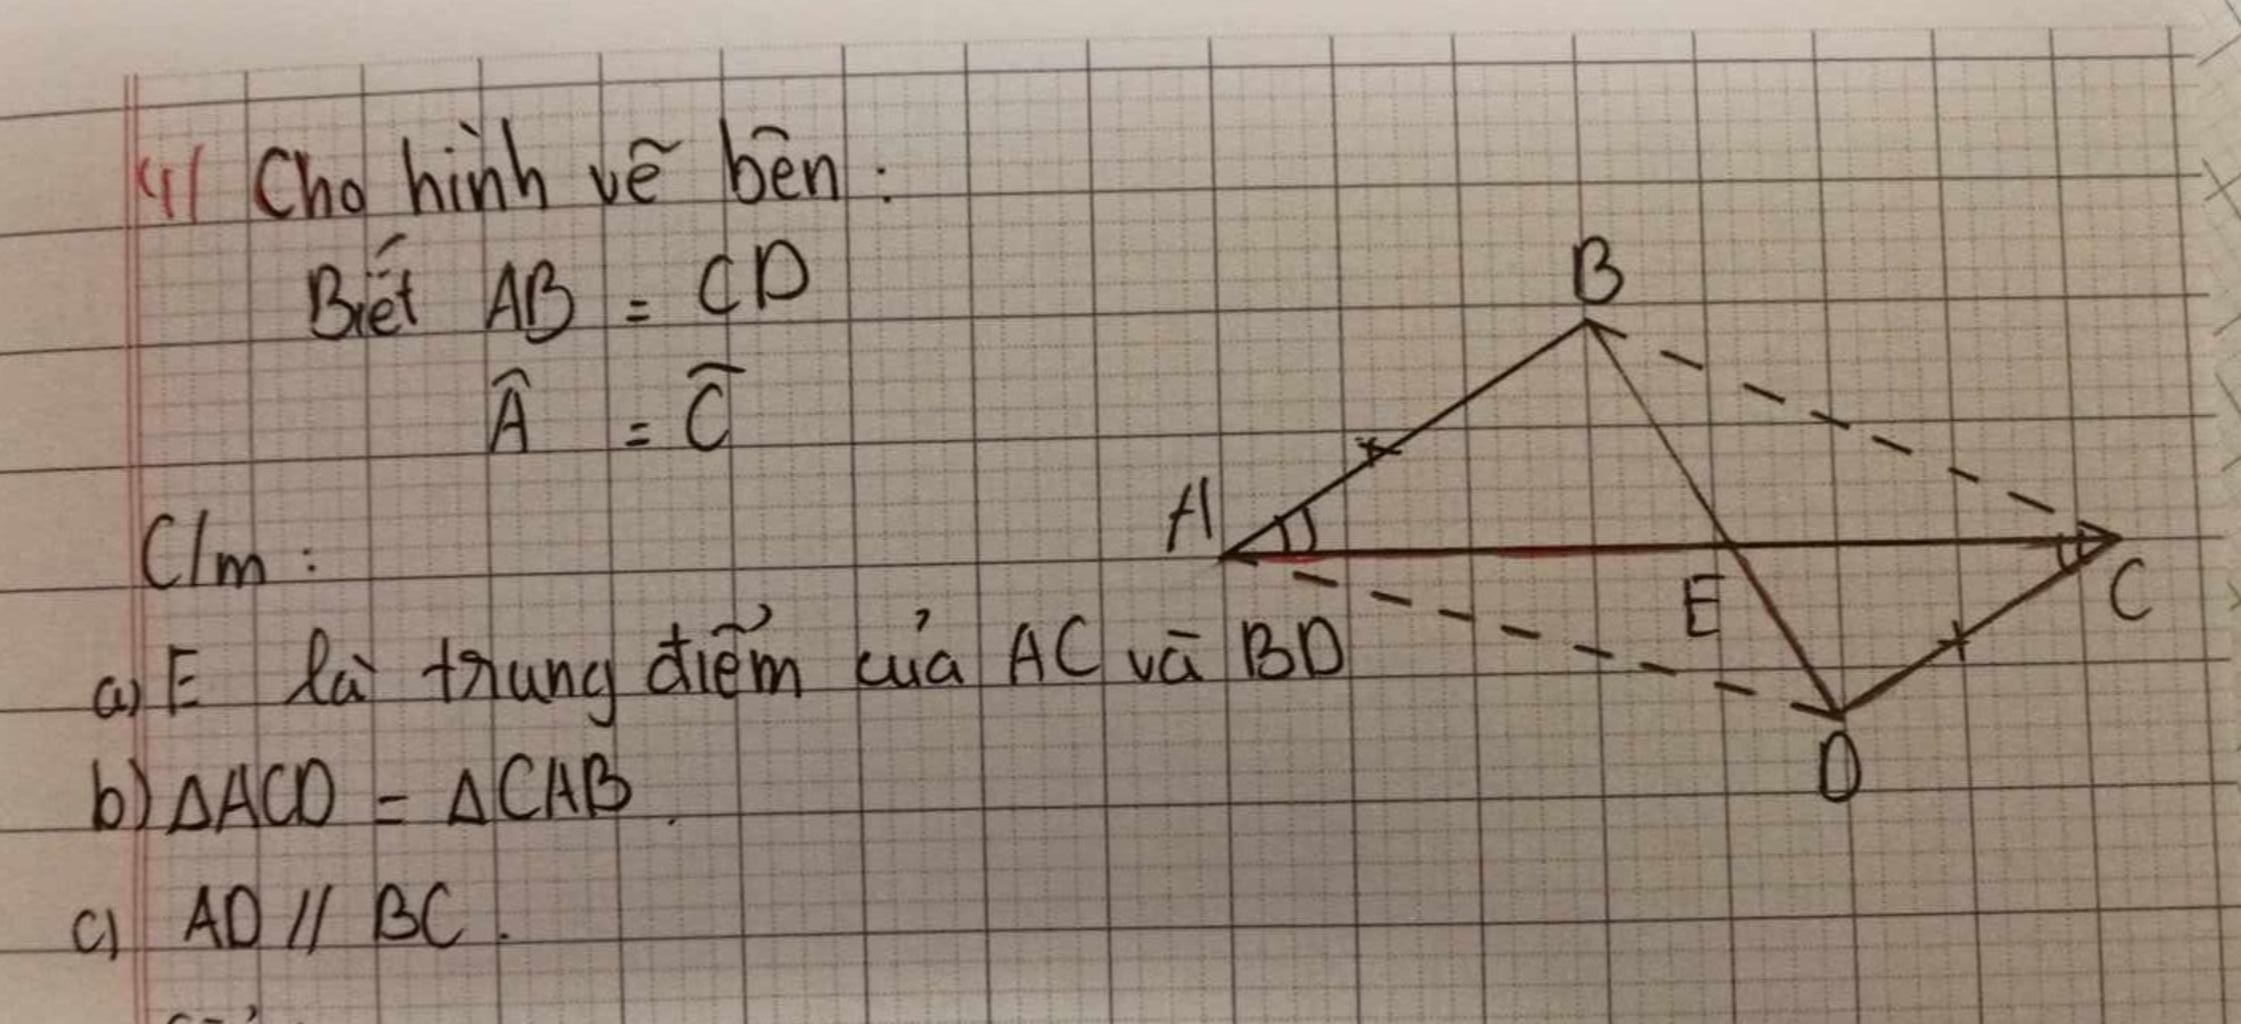 4/ Cho hình vẽ bên :
Biết AB = CD
Â = Ĉ
C/m :
a) E là trung điểm của AC và BD
b) ΔACD = ΔCAB.
c) AD // BC.
B
A
E
C
D